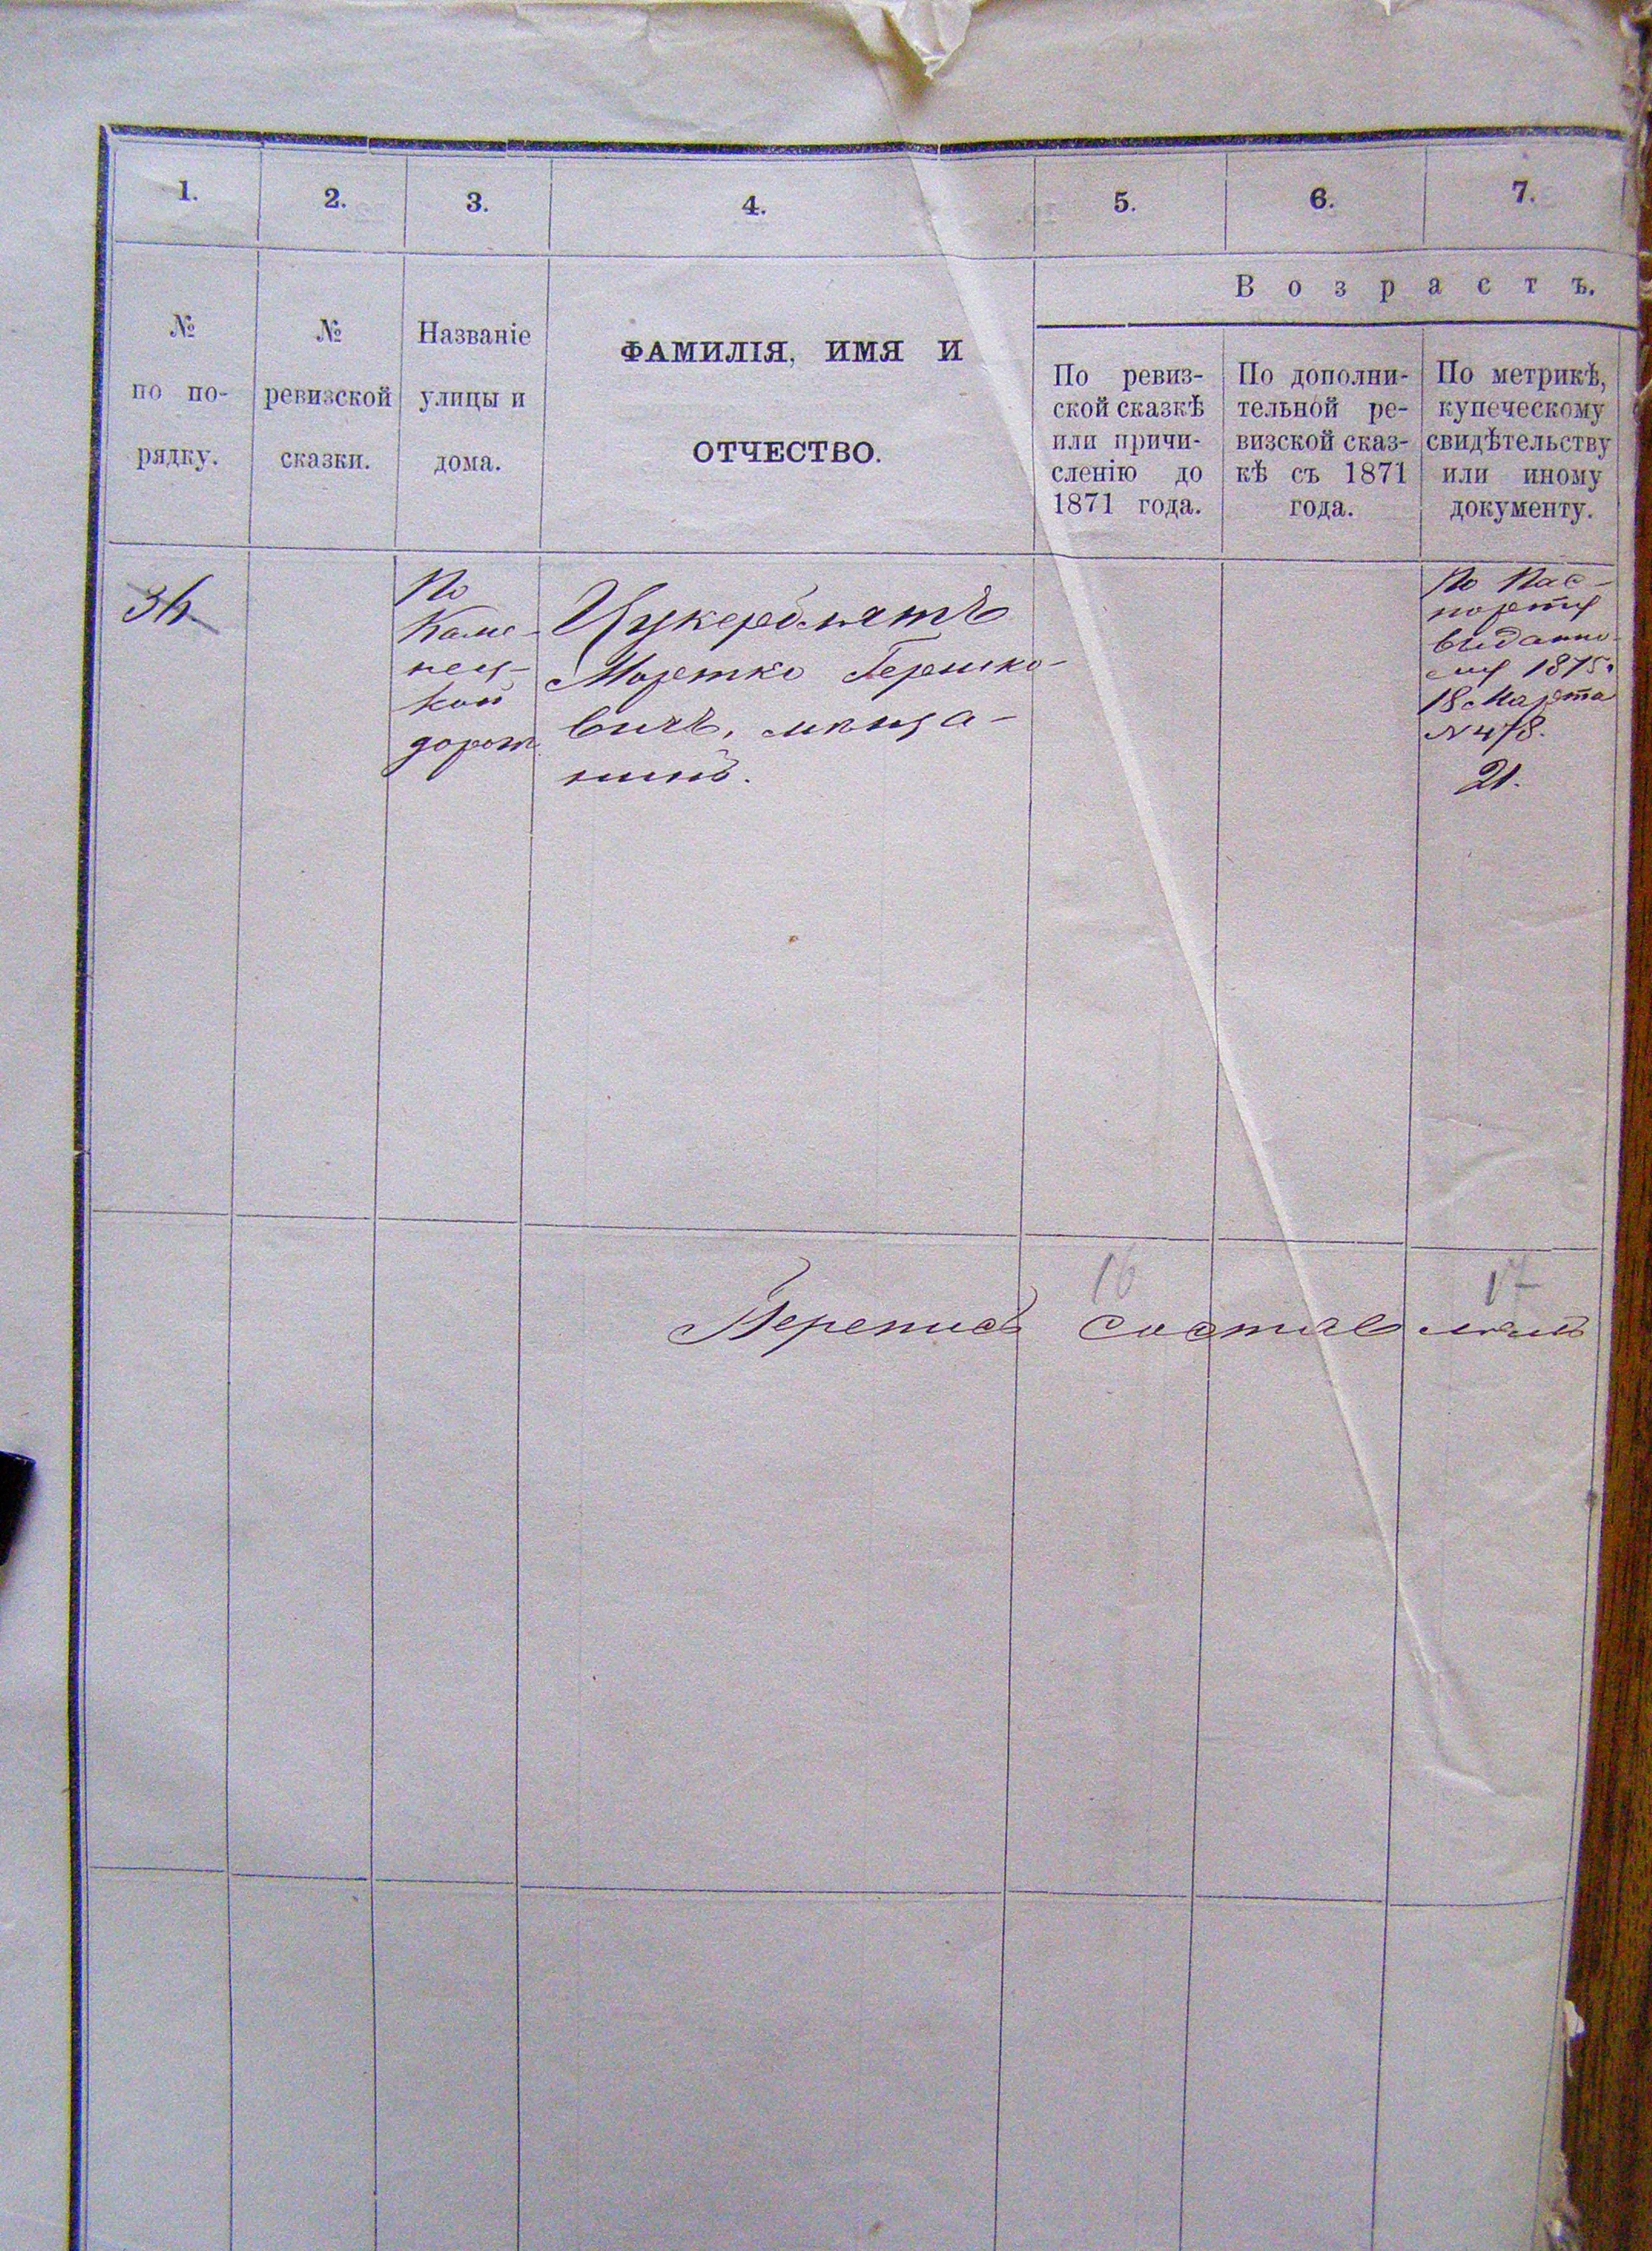 1. 2. 3. 4. 5. 6. 7.
Возрастъ.
№
по по-
рядку.
№
ревизской
сказки.
Названіе
улицы и
дома.
ФАМИЛІЯ, ИМЯ И
ОТЧЕСТВО.
По ревиз-
ской сказкѣ
или причи-
сленію до
1871 года.
По дополни-
тельной ре-
визской сказ-
кѣ съ 1871
года.
По метрикѣ,
купеческому
свидѣтельству
или иному
документу.
По
Каме-
нец-
кой
дорог
Цукерблятъ
Мортко Гершко-
вичъ, мѣща-
нинъ.
По Пас-
порту
выданно-
му 1875.
18 Марта
№ 478.
21.
16 17
Перепись составляли